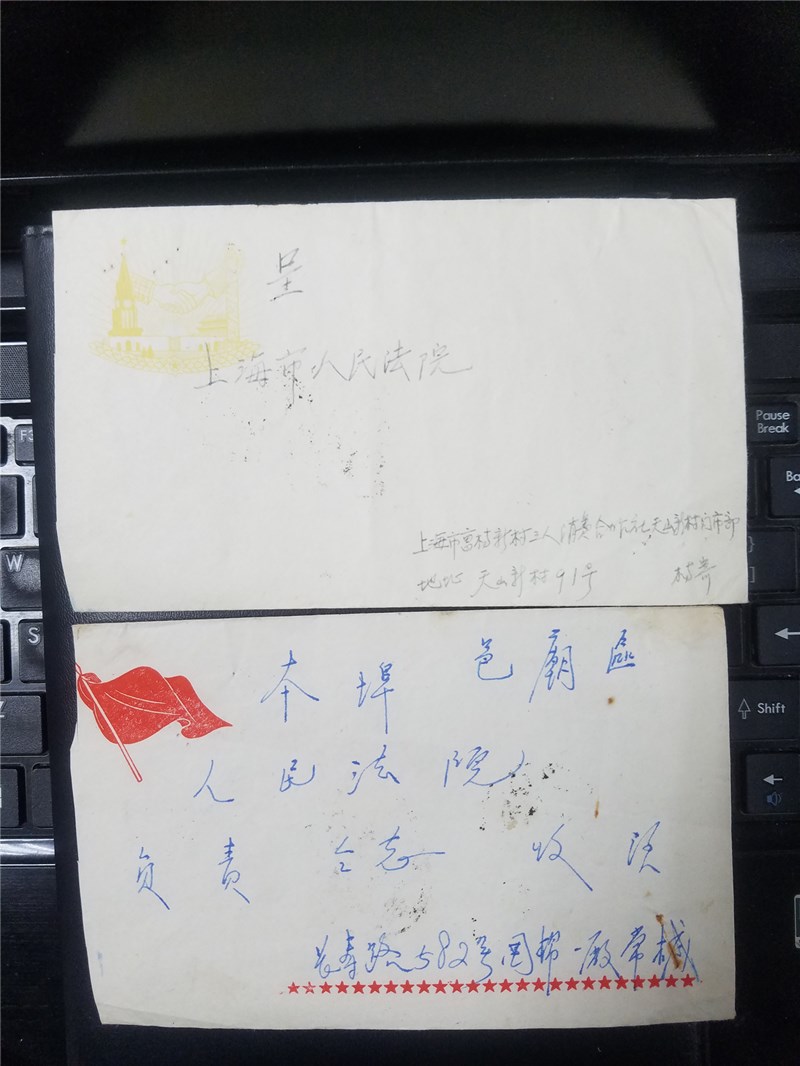 呈
上海市人民法院
上海市 新村工人消费合作社天山新村门市部
地址 天山新村91号 寄
本埠 邑廟區
人民法院
负责 仝志 收 
长寿路582号国棉一厰常
Pause
Break
Ba
W
S
Shift